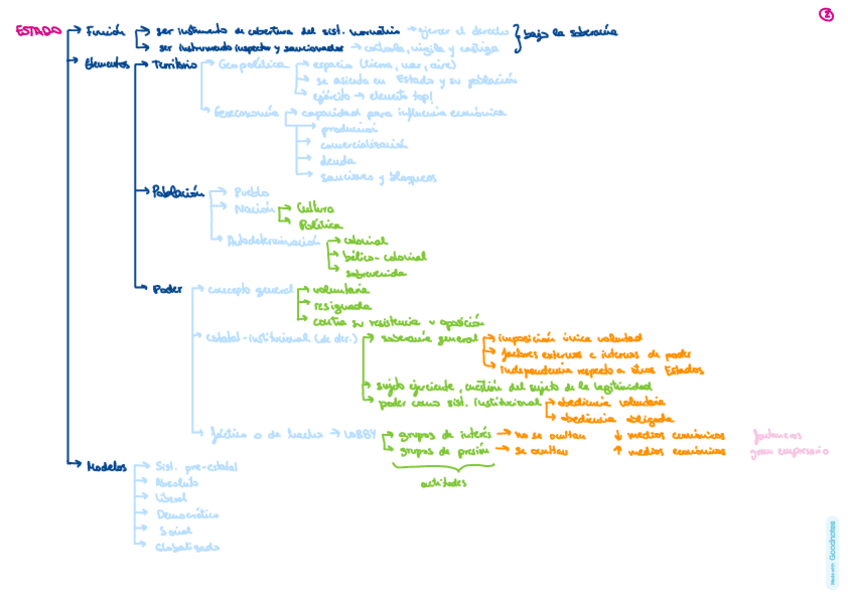 2
ESTADO → Función → ser instrumento de cobertura del sist. normativo → ejercer el derecho } bajo la soberanía
→ ser instrumento inspector y sancionador → controla, vigila y castiga
→ Elementos → Territorio → Geopolítica → espacio (tierra, mar, aire)
→ se asienta en Estado y su población
→ ejército → elemento top!
→ Geoeconomía → capacidad para influencia económica
→ produccion
→ comercialización
→ deuda
→ sanciones y bloqueos
→ Población → Pueblo
→ Nación → Cultura
→ Política
→ Autodeterminación → colonial
→ bélico-colonial
→ sobrevenida
→ Poder → concepto general → voluntaria
→ resignada
→ contra su resistencia u oposición
→ estatal-institucional (de der.) → soberanía general → imposición única voluntad
→ factores externos e internos de poder
→ independencia respecto a otros Estados
→ sujeto ejerciente, cuestión del sujeto de la legitimidad
→ poder como sist. institucional → obediencia voluntaria
→ obediencia obligada
→ fáctico o de hecho → LOBBY → grupos de interés → no se ocultan ↓ medios económicos
→ grupos de presión → se ocultan ↑ medios económicos gran empresario
actitudes
→ Modelos → Sist. pre-estatal
→ Absoluto
→ Liberal
→ Democrático
→ Social
→ Globalizado
Made with Goodnotes